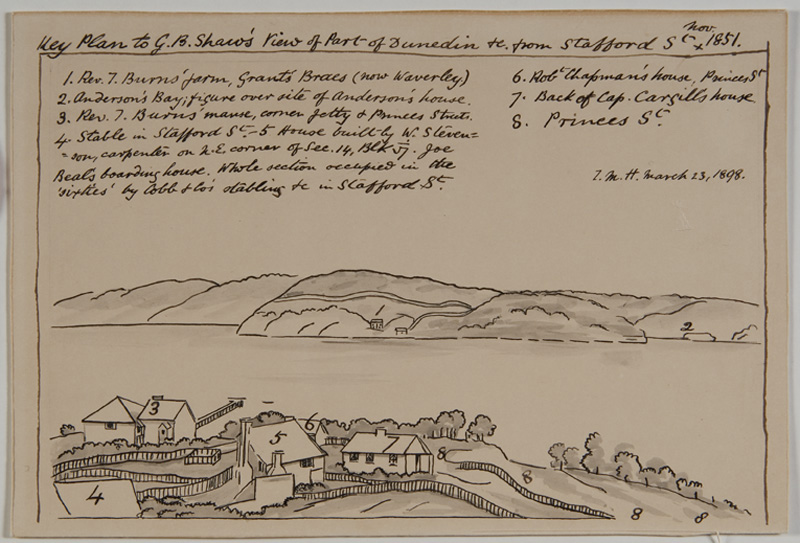 Key Plan to G.B. Shaw's View of Part of Dunedin &c. from Stafford St. Nov. 1851.
1. Rev. T. Burns' farm, Grant's Braes (now Waverley)
2. Anderson's Bay; figure over site of Anderson's house.
3. Rev. T. Burns' manse, corner Jetty & Princes Streets.
4. Stable in Stafford St. – 5 House built by W. Steven=
=son, carpenter on N.E. corner of Sec. 14, Blk VI. Joe
Beal's boarding house. Whole section occupied in the
'sixties' by Cobb & Co's stabling &c in Stafford St.
6. Robt. Chapman's house, Princes St
7. Back of Cap. Cargills house
8. Princes St.
T. M. H. March 23, 1898.
1
2
3
4
5
6
7
8
8
8
8